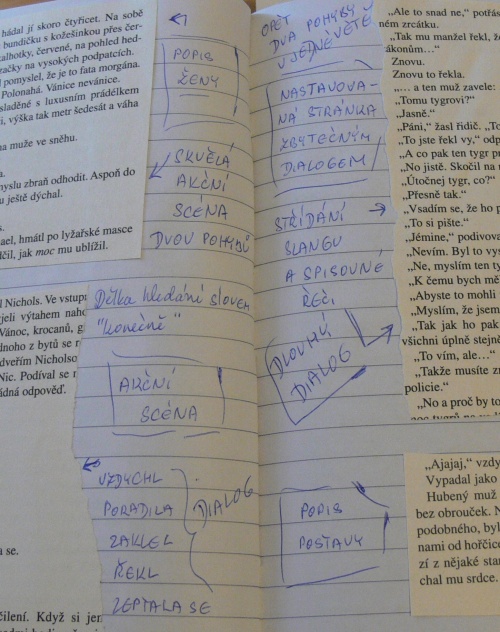 hádal jí skoro čtyřicet. Na sobě
bundičku s kožešinkou přes čer-
alhotky, červené, na pohled hed-
začky na vysokých podpatcích.
pomyslel, že je to fata morgána.
Polonahá. Vánice nevánice.
sladěné s luxusním prádélkem
i, výška tak metr šedesát a váha
na muže ve sněhu.
a.
myslu zbraň odhodit. Aspoň do
u ještě dýchal.
s.
ael, hmátl po lyžařské masce
dčil, jak moc mu ublížil.
l Nichols. Ve vstupn
jeli výtahem naho
Vánoc, krocanů, g
dnoho z bytů se r
dveřím Nicholso
Nic. Podíval se n
ádná odpověď.
a se.
čílení. Když si jen
POPIS
ŽENY
SKVĚLÁ
AKČNÍ
SCÉNA
DVOU POHYBŮ
Délka hledání slovem
"konečně"
AKČNÍ
SCÉNA
VZDYCHL
PORADILA
ZAKLEL
ŘEKL
ZEPTALA SE
DIALOG
OPĚT
DVA POHYBY
V JEDNÉ VĚTĚ
NASTAVOVA-
NÁ STRÁNKA
ZBYTEČNÝM
DIALOGEM
STŘÍDÁNÍ
SLANGU
A SPISOVNÉ
ŘEČI
DLOUHÝ
DIALOG
POPIS
POSTAVY
„Ale to snad ne,“ potřás
ném zrcátku.
„Tak mu manžel řekl, ž
zákonům…“
Znovu.
Znovu to řekla.
„… a ten muž zavele:
„Tomu tygrovi?“
„Jasně.“
„Páni,“ žasl řidič. „To
„To jste řekl vy,“ odp
„A co pak ten tygr p
„No jistě. Skočil na
„Útočnej tygr, co?“
„Přesně tak.“
„Vsadím se, že ho p
„To si pište.“
„Jémine,“ podivova
„Nevím. Byl to vys
„Ne, myslím ten ty
„K čemu bych mě
„Abyste to mohli
„Myslím, že jsem
„Tak jak ho pak
všichni úplně stejně
„To vím, ale…“
„Takže musíte zn
policie.“
„No a proč by to
„Ajajaj,“ vzdy
Vypadal jako
Hubený muž
bez obrouček. N
podobného, byl
nami od hořčice
zí z nějaké star
chal mu srdce.